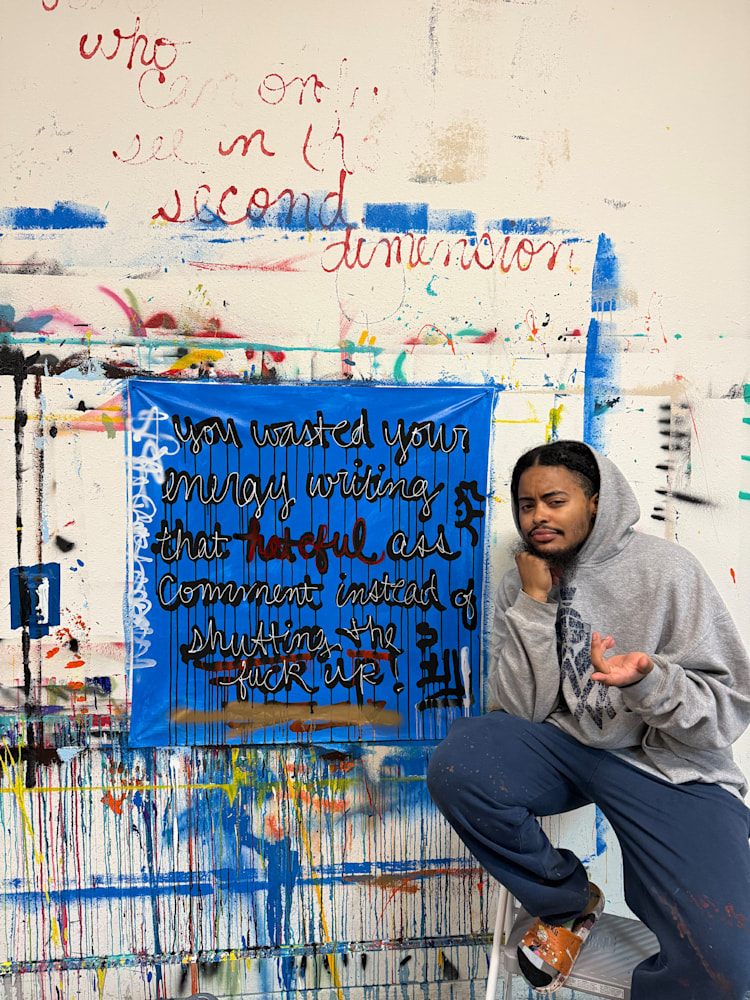 who
can only
see in the
second
dimension
you wasted your
energy writing
that hateful ass
comment instead of
shutting the
fuck up!